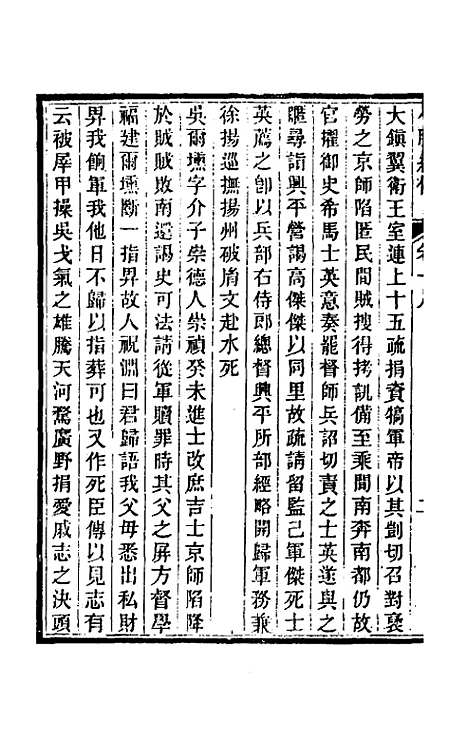 大鎭翼衛王室連上十五疏捐資犒軍帝以其剴切召對褒
勞之京師陷匿民間賊搜得拷訊備至乘間南奔南都仍故
官擢御史希馬士英意奏罷督師兵詔切責之士英遂與之
匿尋詣興平營謁高傑傑以同里故疏請留監己軍傑死士
英薦之卽以兵部右侍郎總督興平所部經略開歸軍務兼
徐揚巡撫揚州破胤文赴水死
吳爾壎字介子崇德人崇禎癸未進士改庶吉士京師陷降
於賊賊敗南還謁史可法請從軍贖罪時其父之屏方督學
福建爾壎斷一指畀故人祝淵曰君歸語我父毋悉出私財
畀我餉軍我他日不歸以指葬可也又作死臣傳以見志有
云被犀甲操吳戈氣之雄騰天河騖廣野捐愛戚志之決頭